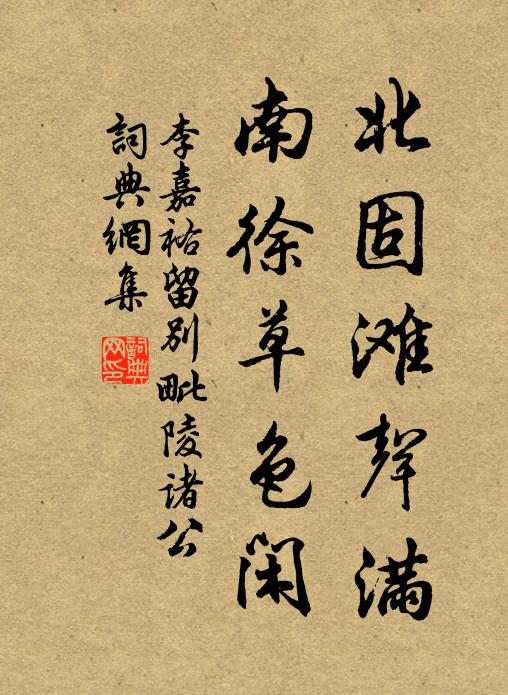 北固滩聲满
南徐草色闲
李嘉祐留别毗陵诸公
詞典網集
詞典网印